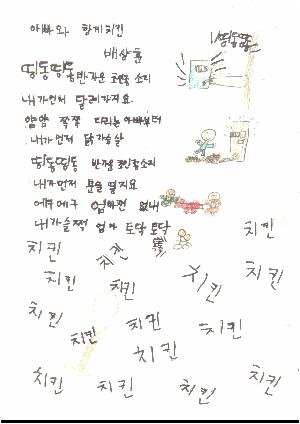 아빠와 함께 치킨
배상훈
띵동띵동
띵동띵동 반가운 초인종 소리
내가먼저 달려가지요.
냠냠 쭉쭉 다리는 아빠부터
내가먼저 닭가슴살
띵동띵동 반가운 초인종소리
내가먼저 문을 열지요
에구에구 엄마껀 없네
내가슬쩍 엄마 토닥 토닥
치킨 치킨 치킨
치킨 치킨 치킨 치킨
치킨 치킨 치킨 치킨
치킨
치킨 치킨 치킨 치킨